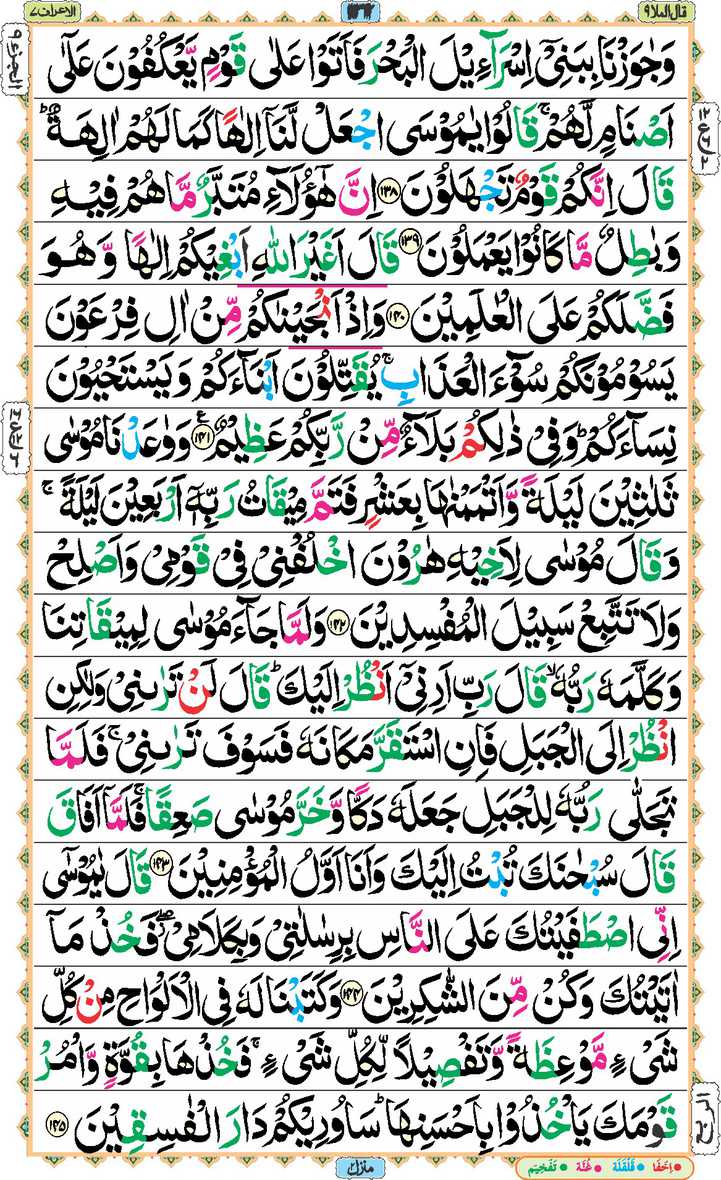 قال الملا ٩
١٦٦
الاعراف ٧
وَجٰوَزْنَا بِبَنِيْۤ اِسْرَآءِيْلَ الْبَحْرَ فَاَتَوْا عَلٰى قَوْمٍ يَّعْكُفُوْنَ عَلٰۤى
اَصْنَامٍ لَّهُمْ ۚ قَالُوْا يٰمُوْسَى اجْعَلْ لَّنَاۤ اِلٰهًا كَمَا لَهُمْ اٰلِهَةٌ ؕ
قَالَ اِنَّكُمْ قَوْمٌ تَجْهَلُوْنَ ﴿۱۳۸﴾ اِنَّ هٰۤؤُلَآءِ مُتَبَّرٌ مَّا هُمْ فِيْهِ
وَبٰطِلٌ مَّا كَانُوْا يَعْمَلُوْنَ ﴿۱۳۹﴾ قَالَ اَغَيْرَ اللّٰهِ اَبْغِيْكُمْ اِلٰهًا وَّهُوَ
فَضَّلَكُمْ عَلَى الْعٰلَمِيْنَ ﴿۱۴۰﴾ وَاِذْ اَنْجَيْنٰكُمْ مِّنْ اٰلِ فِرْعَوْنَ
يَسُوْمُوْنَكُمْ سُوْٓءَ الْعَذَابِ ۚ يُقَتِّلُوْنَ اَبْنَآءَكُمْ وَيَسْتَحْيُوْنَ
نِسَآءَكُمْ ؕ وَفِيْ ذٰلِكُمْ بَلَآءٌ مِّنْ رَّبِّكُمْ عَظِيْمٌ ﴿۱۴۱﴾ ع وَوٰعَدْنَا مُوْسٰى
ثَلٰثِيْنَ لَيْلَةً وَّاَتْمَمْنٰهَا بِعَشْرٍ فَتَمَّ مِيْقَاتُ رَبِّهٖۤ اَرْبَعِيْنَ لَيْلَةً ۚ
وَقَالَ مُوْسٰى لِاَخِيْهِ هٰرُوْنَ اخْلُفْنِيْ فِيْ قَوْمِيْ وَاَصْلِحْ
وَلَا تَتَّبِعْ سَبِيْلَ الْمُفْسِدِيْنَ ﴿۱۴۲﴾ وَلَمَّا جَآءَ مُوْسٰى لِمِيْقَاتِنَا
وَكَلَّمَهٗ رَبُّهٗ ۙ قَالَ رَبِّ اَرِنِيْۤ اَنْظُرْ اِلَيْكَ ؕ قَالَ لَنْ تَرٰىنِيْ وَلٰكِنِ
انْظُرْ اِلَى الْجَبَلِ فَاِنِ اسْتَقَرَّ مَكَانَهٗ فَسَوْفَ تَرٰىنِيْ ۚ فَلَمَّا
تَجَلّٰى رَبُّهٗ لِلْجَبَلِ جَعَلَهٗ دَكًّا وَّخَرَّ مُوْسٰى صَعِقًا ۚ فَلَمَّاۤ اَفَاقَ
قَالَ سُبْحٰنَكَ تُبْتُ اِلَيْكَ وَاَنَا اَوَّلُ الْمُؤْمِنِيْنَ ﴿۱۴۳﴾ قَالَ يٰمُوْسٰۤى
اِنِّي اصْطَفَيْتُكَ عَلَى النَّاسِ بِرِسٰلٰتِيْ وَبِكَلَامِيْ ۖ فَخُذْ مَاۤ
اٰتَيْتُكَ وَكُنْ مِّنَ الشّٰكِرِيْنَ ﴿۱۴۴﴾ وَكَتَبْنَا لَهٗ فِي الْاَلْوَاحِ مِنْ كُلِّ
شَيْءٍ مَّوْعِظَةً وَّتَفْصِيْلًا لِّكُلِّ شَيْءٍ ۚ فَخُذْهَا بِقُوَّةٍ وَّاْمُرْ
قَوْمَكَ يَاْخُذُوْا بِاَحْسَنِهَا ؕ سَاُورِيْكُمْ دَارَ الْفٰسِقِيْنَ ﴿۱۴۵﴾
منزل ٢
اِخْفَا
قَلْقَلَة
غُنَّة
تَفْخِيْم